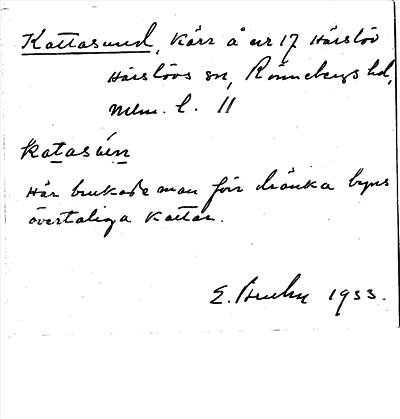 Kattasund, Kärr å nr 17 Härslöv
Härslövs sn, Rönnebergs hd,
Mlm. l. 11
katasún
Här brukade man för dränka byns
övertaliga kattar.
E. 1933.